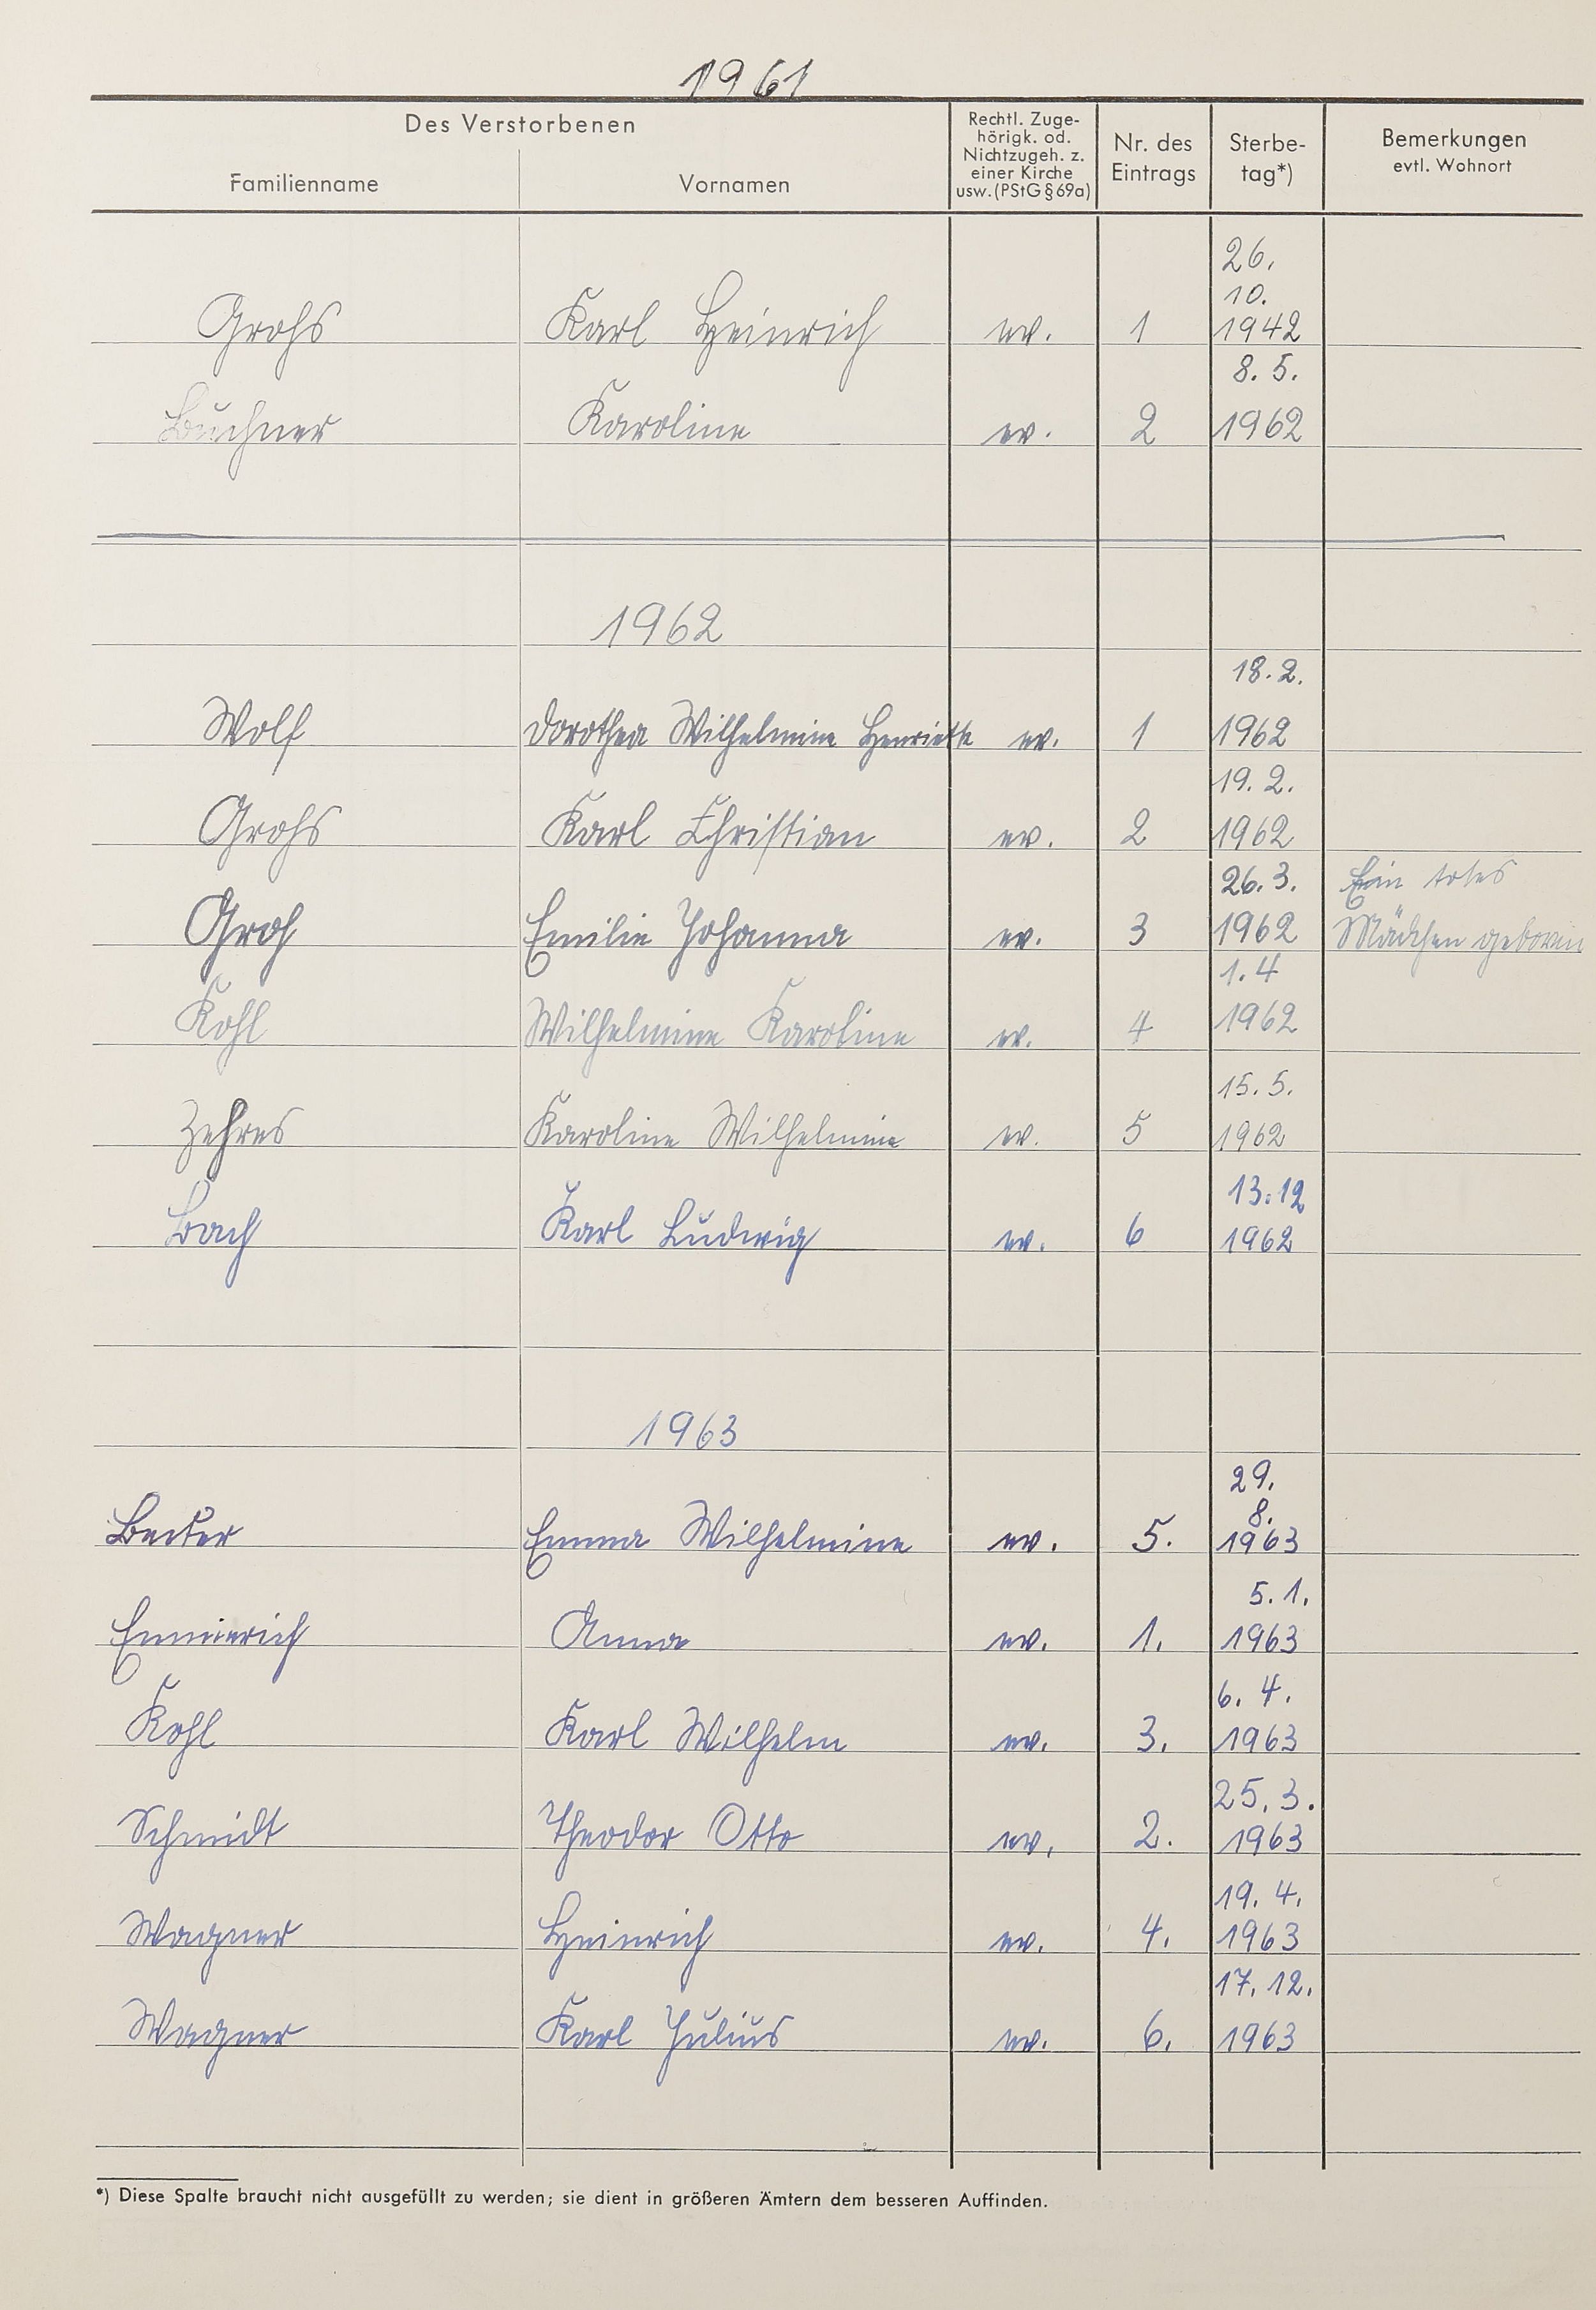 1961
Des Verstorbenen
Familienname
Vornamen
Rechtl. Zuge-
hörigk. od.
Nichtzugeh. z.
einer Kirche
usw. (PStG § 69a)
Nr. des
Eintrags
Sterbe-
tag*)
Bemerkungen
evtl. Wohnort
26.
10.
Grohs Karl Heinrich ev. 1 1942
8. 5.
Büchner Karoline ev. 2 1962
1962
18. 2.
Wolf Dorothea Wilhelmine Henriette ev. 1 1962
19. 2.
Grohs Karl Christian ev. 2 1962
26. 3. Ein totes
Groh Emilie Johanna ev. 3 1962 Mädchen geboren
1. 4
Kohl Wilhelmine Karoline ev. 4 1962
15. 5.
Zehres Karoline Wilhelmine ev. 5 1962
13. 12
Bach Karl Ludwig ev. 6 1962
1963
29.
8.
Becker Emma Wilhelmine ev. 5. 1963
5. 1.
Emmerich Anna ev. 1. 1963
6. 4.
Kohl Karl Wilhelm ev. 3. 1963
25. 3.
Schmidt Theodor Otto ev. 2. 1963
19. 4.
Wagner Heinrich ev. 4. 1963
17. 12.
Wagner Karl Julius ev. 6. 1963
*) Diese Spalte braucht nicht ausgefüllt zu werden; sie dient in größeren Ämtern dem besseren Auffinden.